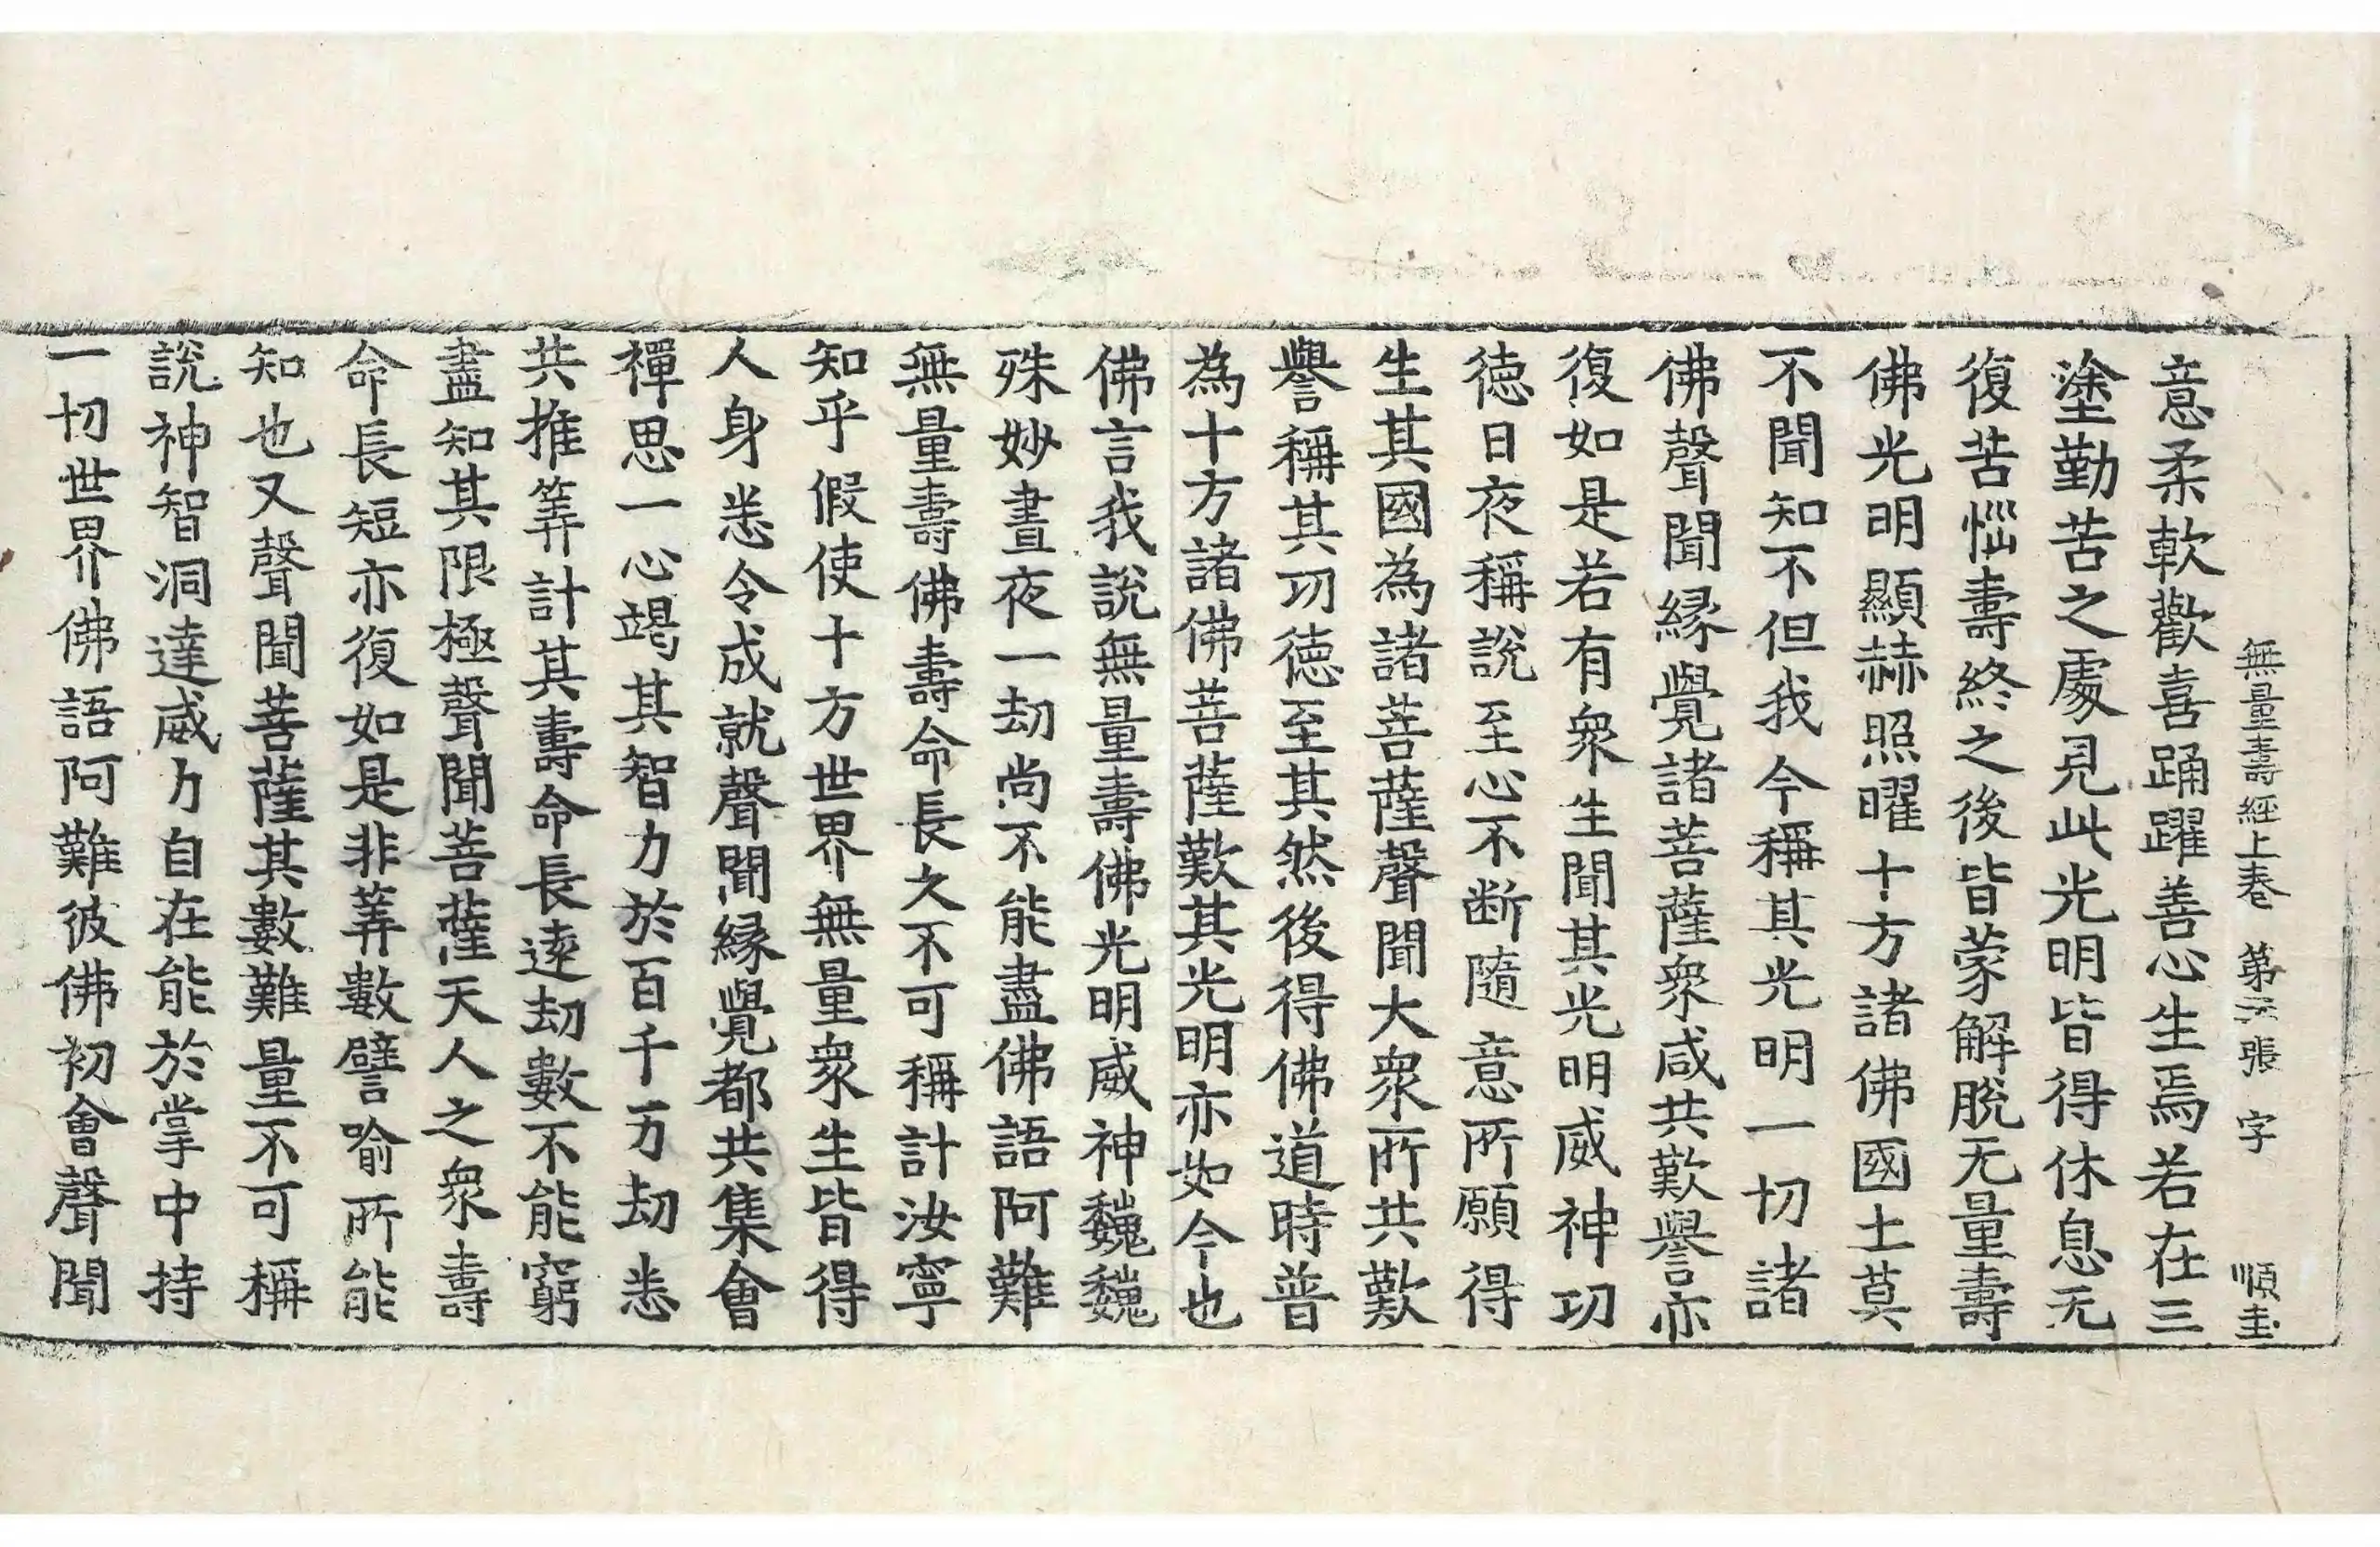 無量壽經上卷 第 張 字 順圭
意柔軟歡喜踊躍善心生焉若在三
塗勤苦之處見此光明皆得休息无
復苦惱壽終之後皆蒙解脫无量壽
佛光明顯赫照曜十方諸佛國土莫
不聞知不但我今稱其光明一切諸
佛聲聞緣覺諸菩薩衆咸共歎譽亦
復如是若有衆生聞其光明威神功
德日夜稱說至心不断隨意所願得
生其國為諸菩薩聲聞大衆所共歎
譽稱其功德至其然後得佛道時普
為十方諸佛菩薩歎其光明亦如今也
佛言我說無量壽佛光明威神巍巍
殊妙晝夜一劫尚不能盡佛語阿難
無量壽佛壽命長久不可稱計汝寧
知乎假使十方世界無量衆生皆得
人身悉令成就聲聞緣覺都共集會
禪思一心竭其智力於百千万劫悉
共推筭計其壽命長遠劫數不能窮
盡知其限極聲聞菩薩天人之衆壽
命長短亦復如是非筭數譬喻所能
知也又聲聞菩薩其數難量不可稱
說神智洞達威力自在能於掌中持
一切世界佛語阿難彼佛初會聲聞